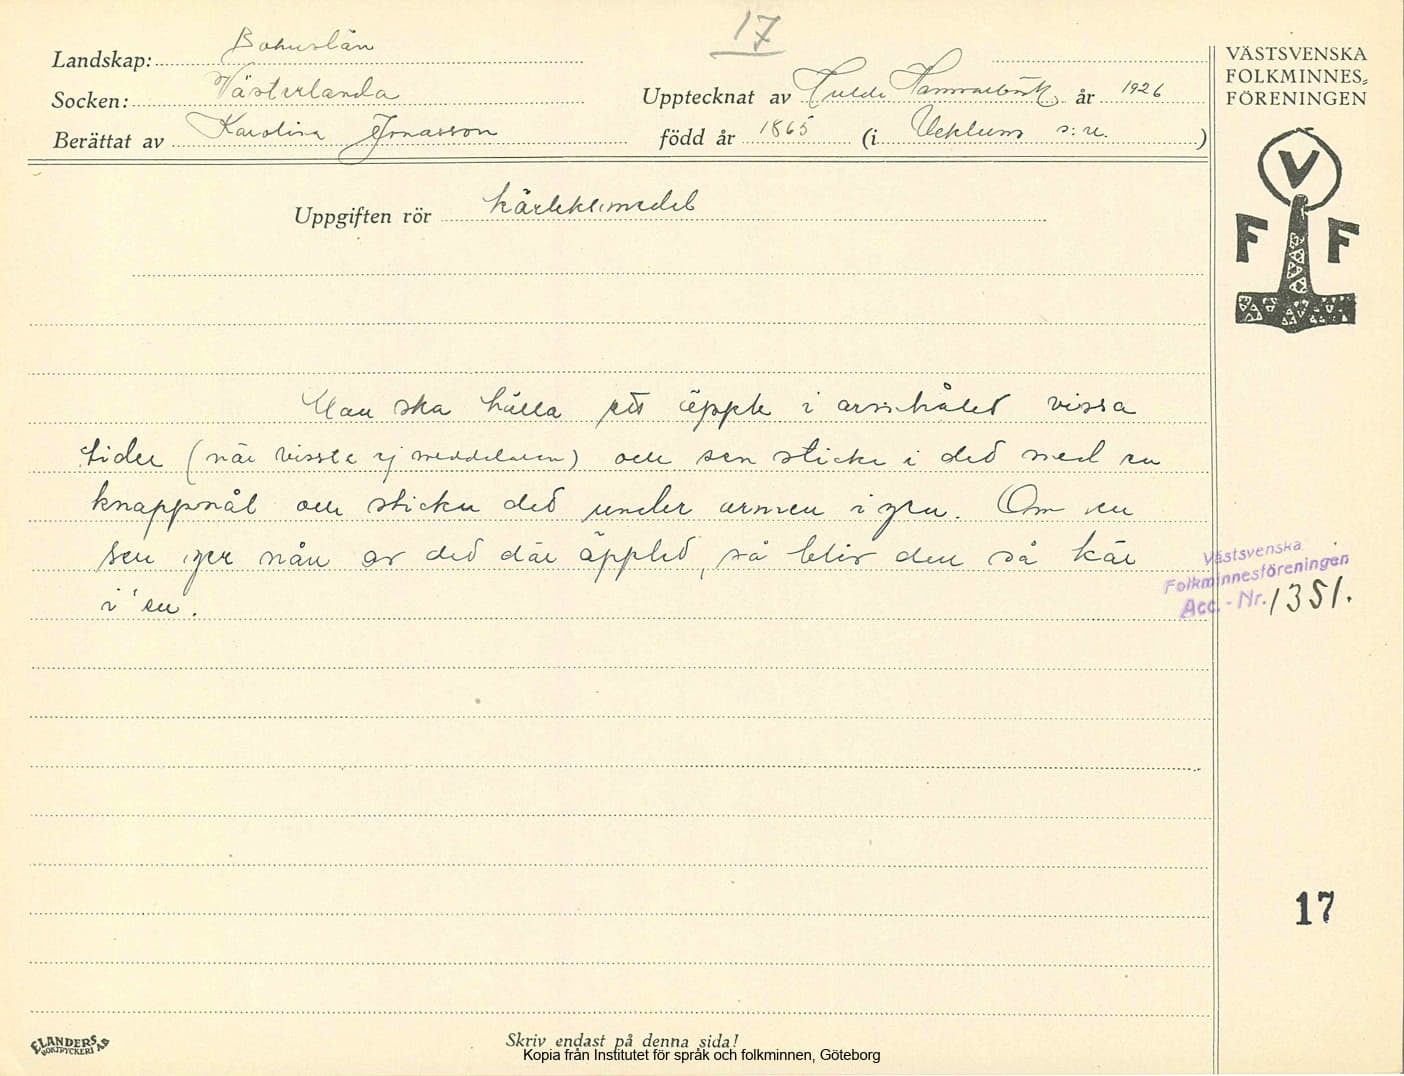 17
Landskap: Bohuslän
Socken: Västerlanda
Upptecknat av Hulda Hammarbäck år 1926
Berättat av Karolina Jonasson född år 1865 (i Ucklums s:n.)
VÄSTSVENSKA
FOLKMINNES-
FÖRENINGEN
V
F F
Uppgiften rör kärleksmedel
Man ska hålla ett äpple i arsehålet vissa
tider (när visste ej meddelaren) och sen sticke i det med en
knappnål och sticka det under armen igen. Om en
sen ger nån av det där äpplet, så blir den så kär
i' en.
Västsvenska
Folkminnesföreningen
Acc.-Nr. 1351.
17
ELANDERS
BOKTRYCKERI AB
Skriv endast på denna sida!
Kopia från Institutet för språk och folkminnen, Göteborg